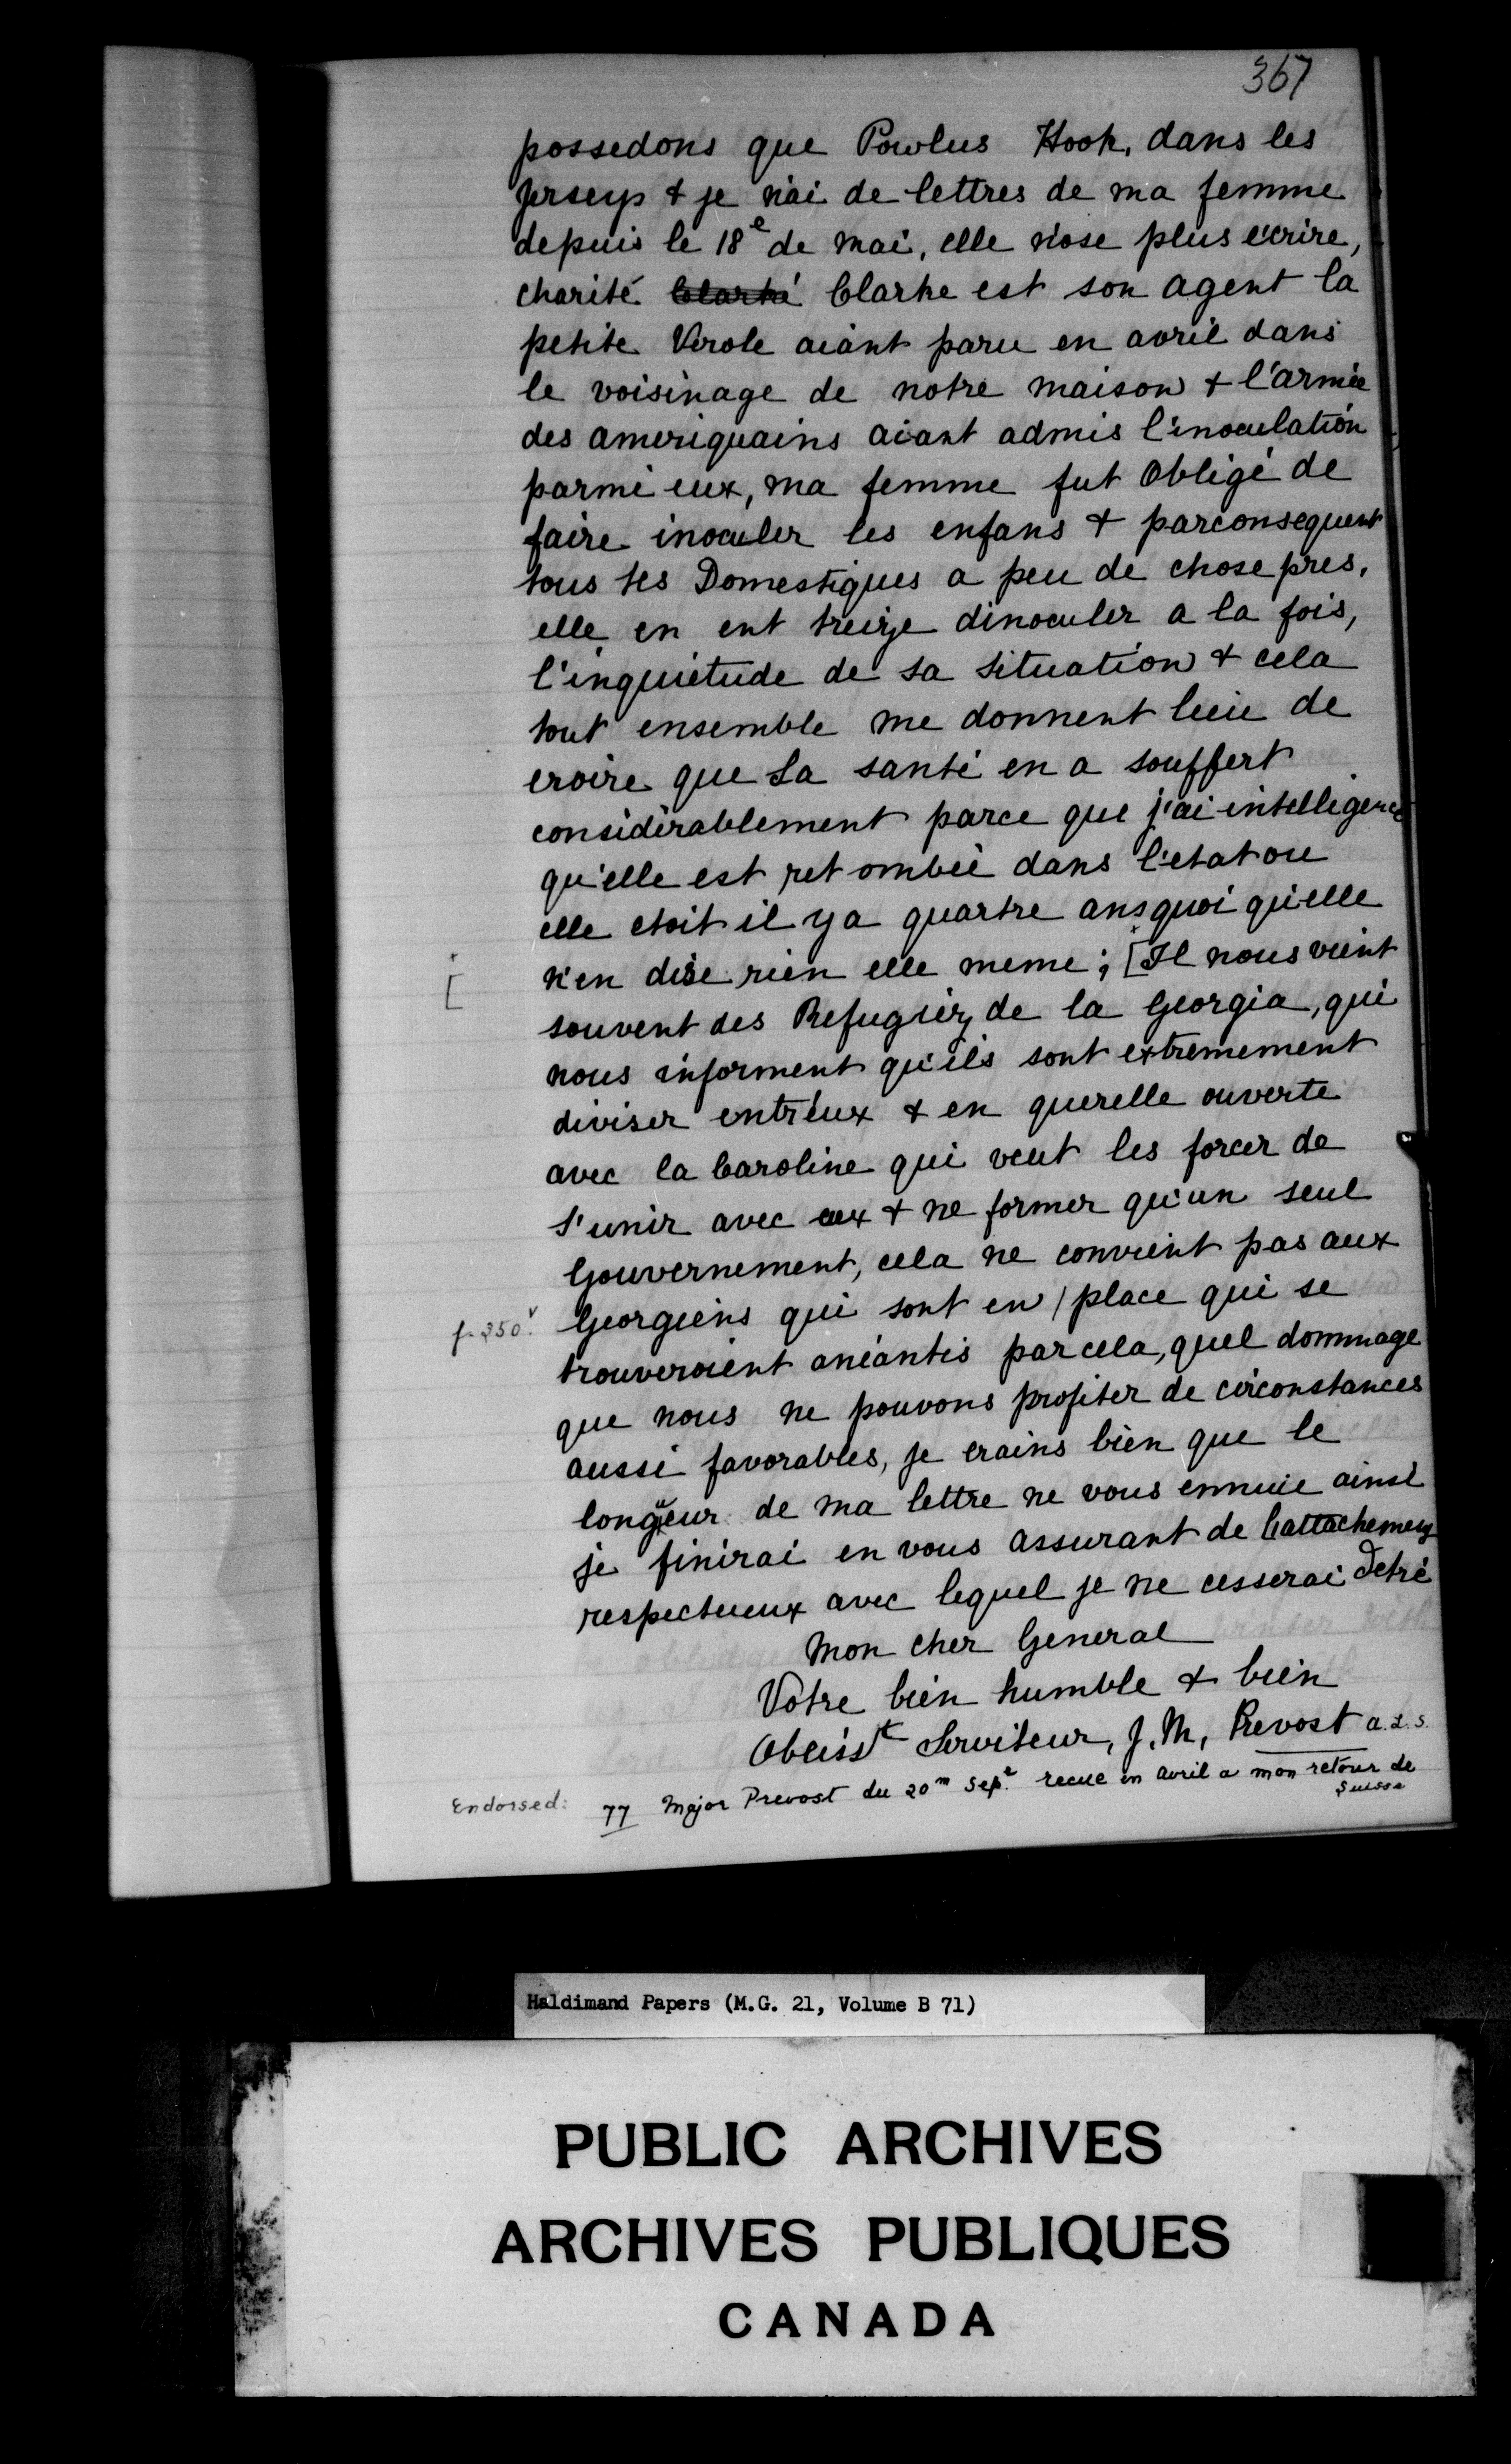 367
possedons que Powlus Hook, dans les
Jerseys & je n'ai de lettres de ma femme
depuis le 18e de mai, elle n'ose plus écrire,
charité Clarké Clarke est son agent la
petite Verole aiant paru en avril dans
le voisinage de notre maison & l'armée
des ameriquains aiant admis l'inoculation
parmi eux, ma femme fut obligé de
faire inoculer les enfans & parconsequent
tous ses Domestiques a peu de chose pres,
elle en eut treize dinoculer a la fois,
l'inquietude de sa situation & cela
tout ensemble me donnent lieu de
croire que sa santé en a souffert
considérablement parce que j'ai intelligence
qu'elle est retombée dans l'etat ou
elle etoit il y a quartre ans quoi qu'elle
[ n'en dise rien elle meme; [Il nous vient
souvent des Refugiez de la Georgia, qui
nous informent qu'ils sont extremement
diviser entr'eux & en querelle ouverte
avec la Caroline qui veut les forcer de
s'unir avec eux & ne former qu'un seul
Gouvernement, cela ne convient pas aux
f. 250v. Georgiens qui sont en / place qui se
trouveroient anéantis par cela, quel dommage
que nous ne pouvons profiter de circonstances
aussi favorables, je crains bien que le
longueur de ma lettre ne vous ennuie ainsi
je finirai en vous assurant de l'attachement
respectueux avec lequel je ne cesserai detré
Mon cher General
Votre bien humble & bien
Obeisst Serviteur, J. M. Prevost a.l.s.
Endorsed: 77 Major Prevost du 20m Sept. recue en avril a mon retour de
Suisse
Haldimand Papers (M.G. 21, Volume B 71)
PUBLIC ARCHIVES
ARCHIVES PUBLIQUES
CANADA